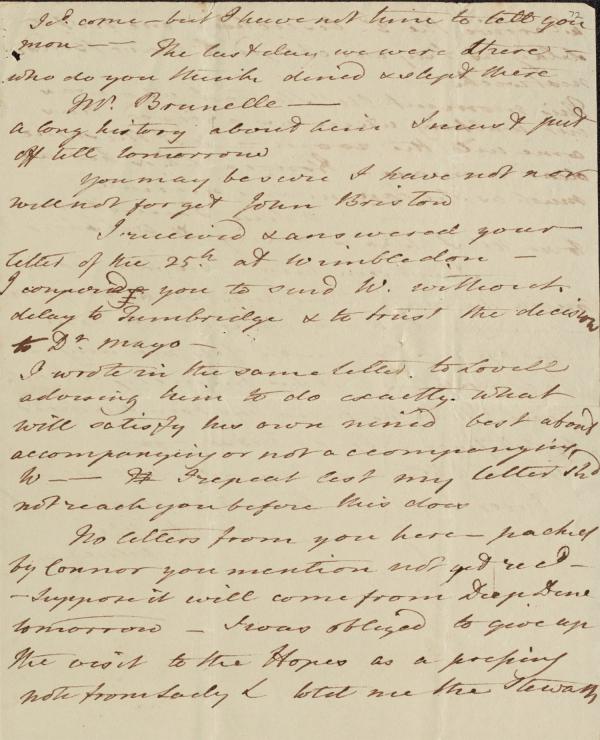 72
Ld. come – but I have not time to tell you
mor — The last day we were there
who do you think dined & slept there
Mr. Brunelle —
a long history about him I must put
off till tomorrow
You may be sure I have not nor
will not forget John Briston
I received & answered your
letter of the 25th at Wimbledon –
I conjured you to send W. without
delay to Tumbridge & to trust the decision
to Dr. Mayo –
I wrote in the same letter to Lovell
advising him to do exactly what
will satisfy his own mind best about
accompanying or not accompanying
W — I repeat lest my letter shd
not reach you before this does
No letters from you here – packet
by Connor you mention not yet recd –
– Suppose it will come from Deep Dene
tomorrow – I was obliged to give up
the visit to the Hopes as a pressing
note from Lady L told me the Stewarts